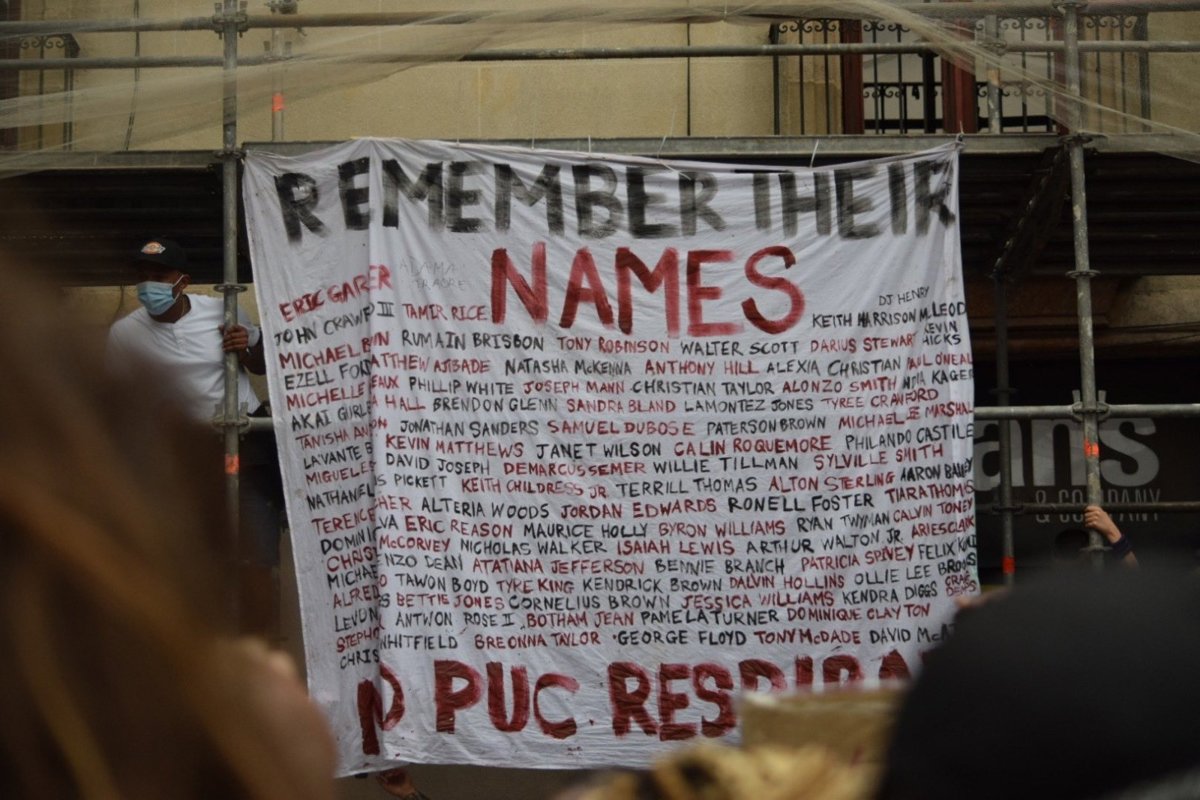 REMEMBER THEIR
NAMES
ERIC GARER
ADAMA
TRAORE
DJ HENRY
JOHN CRAWF III TAMIR RICE KEITH HARRISON McLEOD
MICHAEL RUMAIN BRISBON TONY ROBINSON WALTER SCOTT DARIUS STEWART KEVIN HICKS
EZELL FORD MATTHEW AJIBADE NATASHA McKENNA ANTHONY HILL ALEXIA CHRISTIAN PAUL O'NEAL
MICHELLE EAUX PHILLIP WHITE JOSEPH MANN CHRISTIAN TAYLOR ALONZO SMITH KAGER
AKAI GURLE A HALL BRENDON GLENN SANDRA BLAND LAMONTEZ JONES TYREE CRAWFORD
TANISHA JONATHAN SANDERS SAMUEL DUBOSE PATERSON BROWN MICHAEL LEE MARSHAL
LAVANTE KEVIN MATTHEWS JANET WILSON CALIN ROQUEMORE PHILANDO CASTILE
MIGUEL DAVID JOSEPH DEMARCUS SEMER WILLIE TILLMAN SYLVILLE SMITH
NATHANIEL S PICKETT KEITH CHILDRESS JR TERRILL THOMAS ALTON STERLING AARON BAILEY
TERENCE HER ALTERIA WOODS JORDAN EDWARDS RONELL FOSTER TIARA THOMAS
DOMINIC VA ERIC REASON MAURICE HOLLY BYRON WILLIAMS RYAN TWYMAN CALVIN TONEY
CHRIST McCORVEY NICHOLAS WALKER ISAIAH LEWIS ARTHUR WALTON JR. ARIES CLARK
MICHAE NZO DEAN ATATIANA JEFFERSON BENNIE BRANCH PATRICIA SPIVEY FELIX
ALFRED O TAWON BOYD TYRE KING KENDRICK BROWN DALVIN HOLLINS OLLIE LEE BROOKS
LEVON S BETTIE JONES CORNELIUS BROWN JESSICA WILLIAMS KENDRA DIGGS CRAIG DEMPS
STEPHO ANTWON ROSE II, BOTHAM JEAN PAMELA TURNER DOMINIQUE CLAYTON
CHRIS WHITFIELD BREONNA TAYLOR GEORGE FLOYD TONY McDADE DAVID McA
NO PUC RESPIRA
ans
& COMPANY